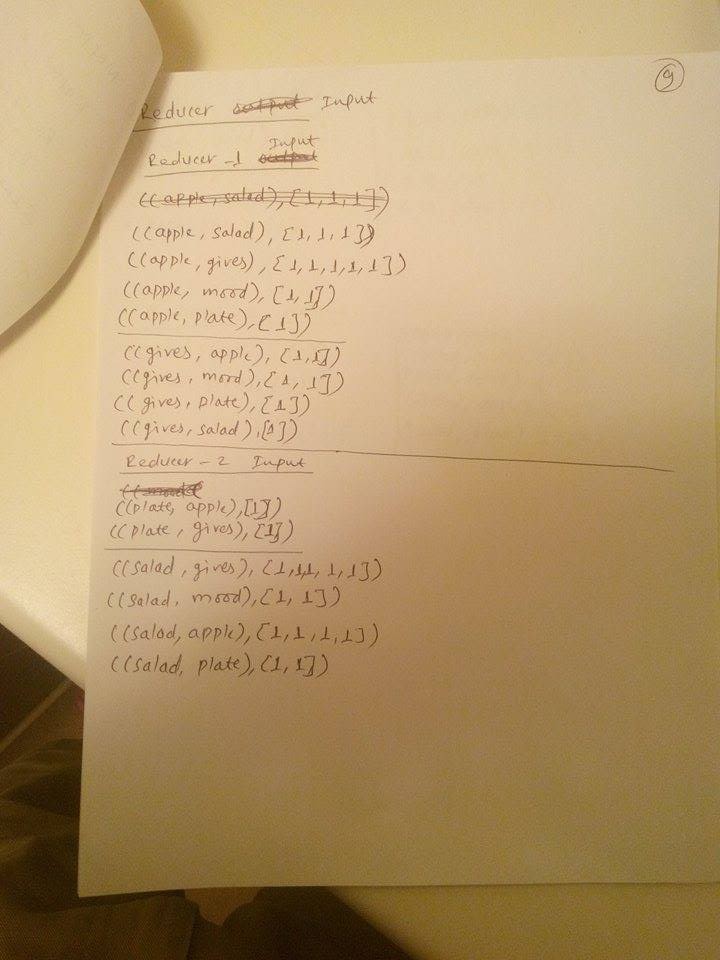 9
Reducer output Input
Input
Reducer -1 output
((apple, salad), [1,1,1])
((apple, salad), [1,1,1])
((apple, gives), [1,1,1,1,1])
((apple, mood), [1,1])
((apple, plate), [1])
((gives, apple), [1,1])
((gives, mood), [1, 1])
((gives, plate), [1])
((gives, salad), [1])
Reducer - 2 Input
((plate, apple), [1])
((plate, gives), [1])
((salad, gives), [1,1,1,1,1])
((salad, mood), [1, 1])
((salad, apple), [1,1,1,1])
((salad, plate), [1,1])